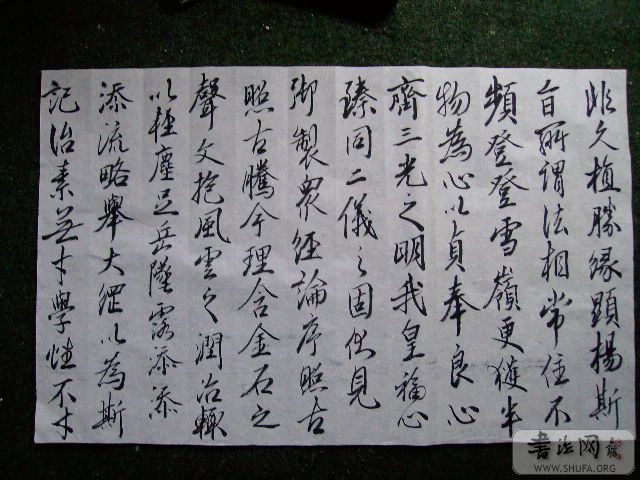 非久植勝緣顯揚斯
旨所謂法相常住不
頻登登雪嶺更獲半
物為心以貞奉良心
齊三光之明我皇福心
臻同二儀之固伏見
御製衆經論序照古
照古騰今理含金石之
聲文抱風雲之潤治輒
以輕塵足岳墜露添添
添流略舉大綱以為斯
記治素無才學性不才
書法网
WWW.SHUFA.ORG